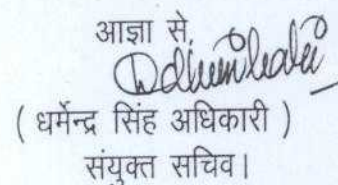 आज्ञा से,
( धर्मेन्द्र सिंह अधिकारी )
संयुक्त सचिव।